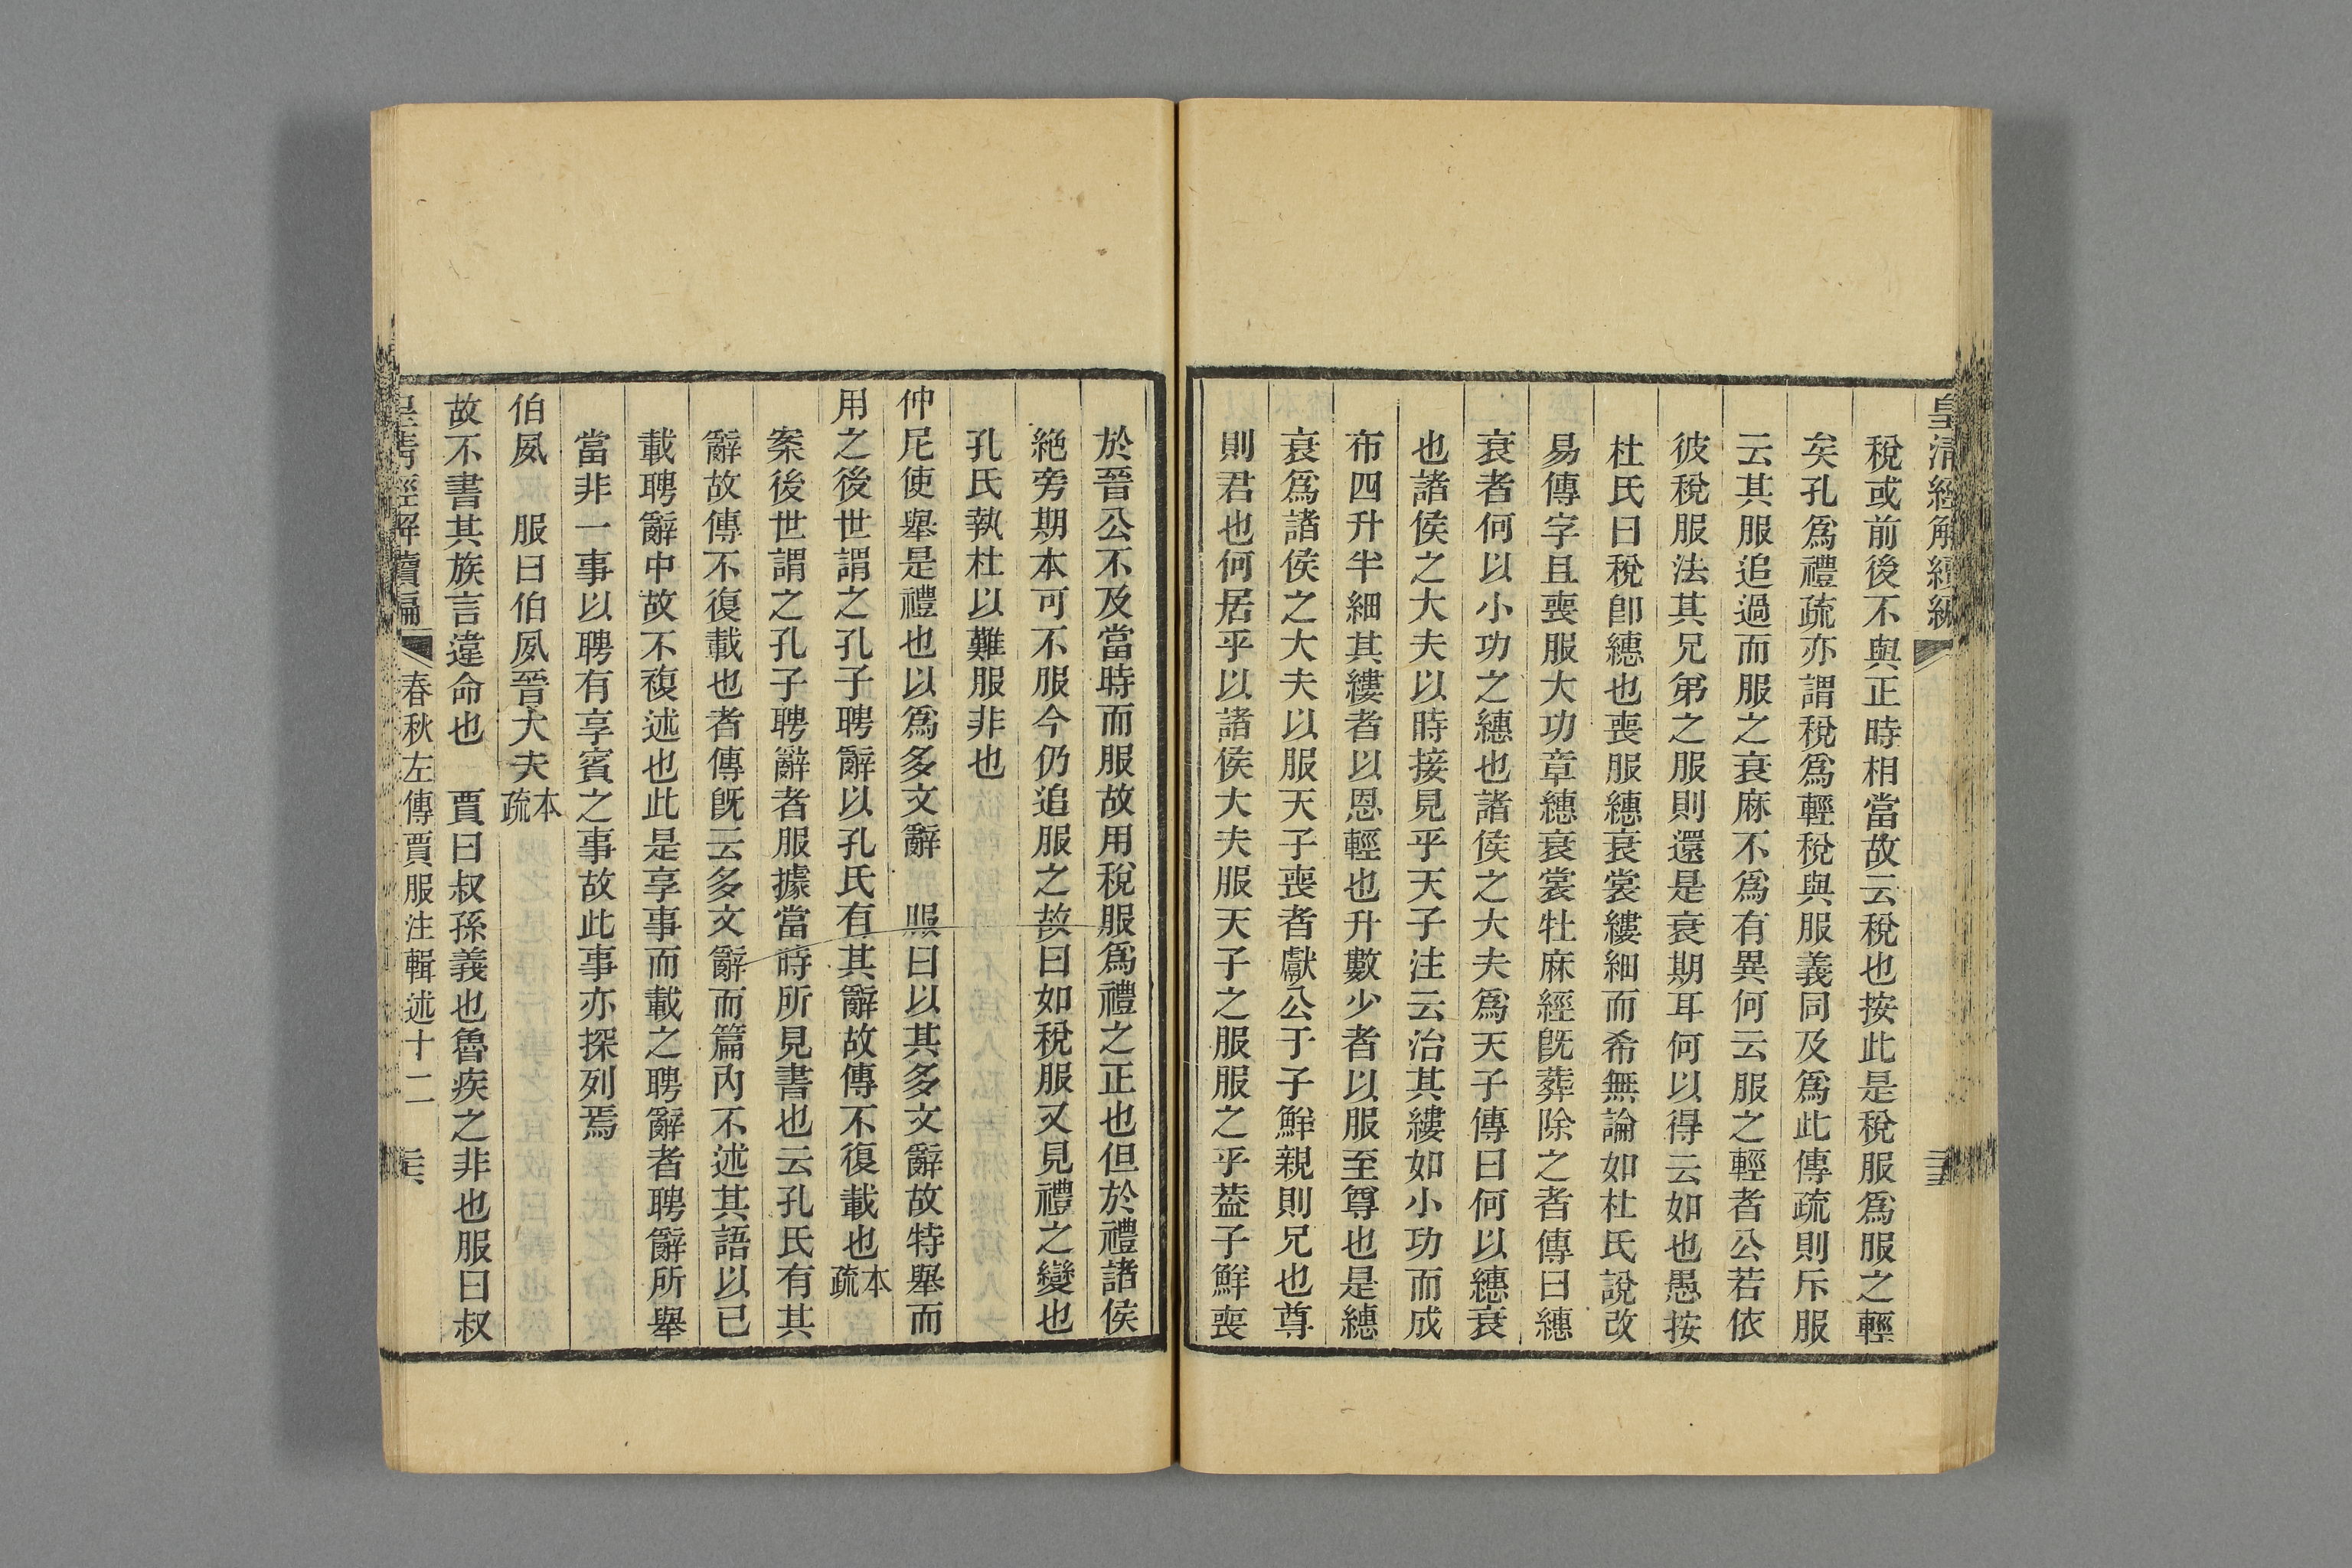 皇清經解續編
稅或前後不與正時相當故云稅也按此是稅服爲服之輕
矣孔爲禮疏亦謂稅爲輕稅與服義同及爲此傳疏則斥服
云其服追過而服之衰麻不爲有異何云服之輕者公若依
彼稅服法其兄弟之服則還是衰期耳何以得云如也愚按
杜氏曰稅卽繐也喪服繐衰裳縷細而希無論如杜氏說改
易傳字且喪服大功章繐衰裳牡麻絰旣葬除之者傳曰繐
衰者何以小功之繐也諸侯之大夫爲天子傳曰何以繐衰
也諸侯之大夫以時接見乎天子注云治其縷如小功而成
布四升半細其縷者以恩輕也升數少者以服至尊也是繐
衰爲諸侯之大夫以服天子喪者獻公于子鮮親則兄也尊
則君也何居乎以諸侯大夫服天子之服服之乎葢子鮮喪
於晉公不及當時而服故用稅服爲禮之正也但於禮諸侯
絶旁期本可不服今仍追服之故曰如稅服又見禮之變也
孔氏執杜以難服非也
仲尼使舉是禮也以爲多文辭 服曰以其多文辭故特舉而
用之後世謂之孔子聘辭以孔氏有其辭故傳不復載也本疏
案後世謂之孔子聘辭者服據當時所見書也云孔氏有其
辭故傳不復載也者傳旣云多文辭而篇內不述其語以已
載聘辭中故不複述也此是享事而載之聘辭者聘辭所舉
當非一事以聘有享賓之事故此事亦探列焉
伯夙 服曰伯夙晉大夫本疏
故不書其族言違命也 賈曰叔孫義也魯疾之非也服曰叔
皇淸經解續編 春秋左傳賈服注輯述十二